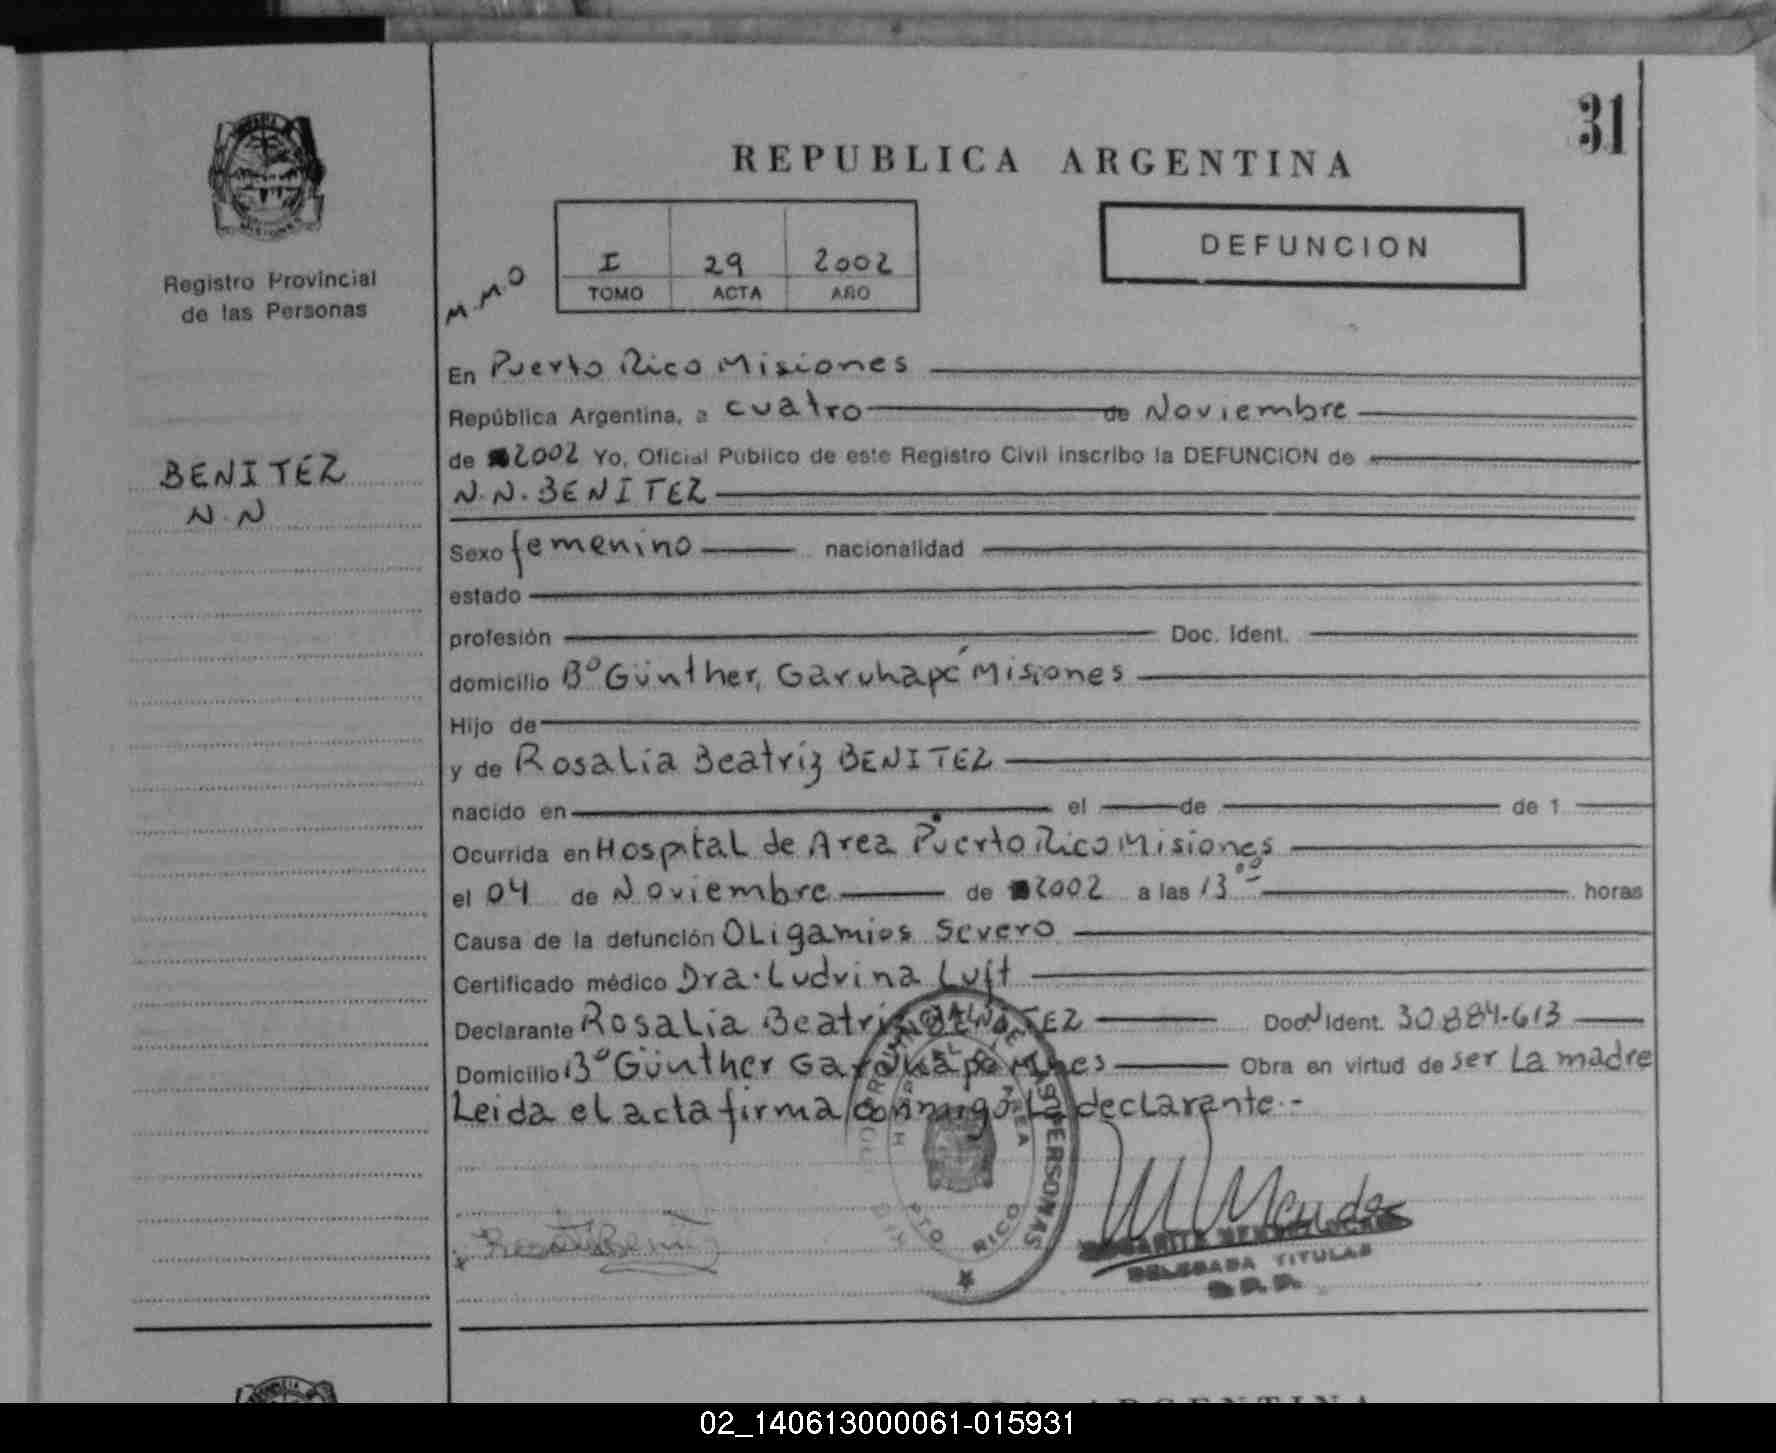 31
REPUBLICA ARGENTINA
Registro Provincial
de las Personas
M.M.O
I 29 2002
TOMO ACTA AÑO
DEFUNCION
BENITEZ
N.N
En Puerto Rico Misiones
República Argentina, a cuatro de Noviembre
de 2002 Yo, Oficial Publico de este Registro Civil inscribo la DEFUNCION de
N.N. BENITEZ
Sexo femenino nacionalidad
estado
profesión Doc. Ident.
domicilio Bº Günther, Garuhapé Misiones
Hijo de
y de Rosalia Beatriz BENITEZ
nacido en el de de 1
Ocurrida en Hospital de Area Puerto Rico Misiones
el 04 de Noviembre de 2002 a las 13ºº horas
Causa de la defunción OLigamios Severo
Certificado médico Dra. Ludvina Luft
Declarante Rosalia Beatriz BENITEZ Ident. 30884.613
Domicilio Bº Günther Garuhapé Mnes Obra en virtud de ser La madre
Leida el acta firma conmigo La declarante.-
PERSONAS
PTO RICO
DELEGADA TITULAR
02_140613000061-015931